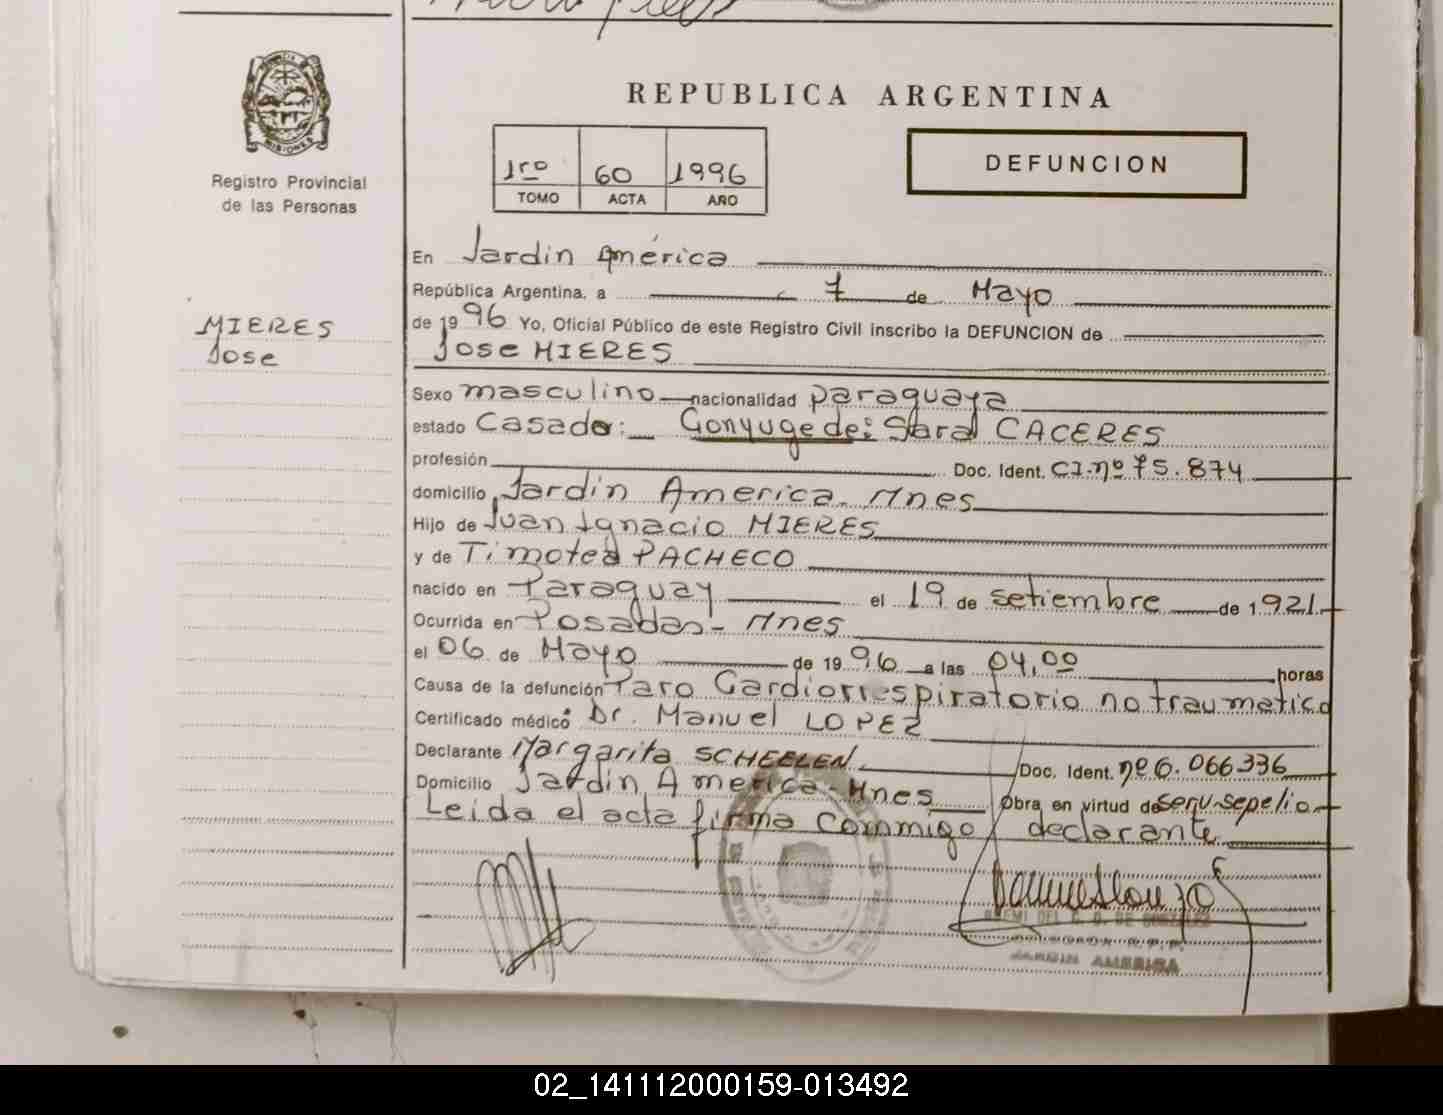 REPUBLICA ARGENTINA
1ro 60 1996
TOMO ACTA AÑO
DEFUNCION
MISIONES
Registro Provincial
de las Personas
MIERES
Jose
En Jardin América
República Argentina, a 7 de Mayo
de 1996 Yo, Oficial Público de este Registro Civil inscribo la DEFUNCION de
Jose MIERES
Sexo masculino nacionalidad paraguaya
estado Casado: Conyuge de: Sara CACERES
profesión Doc. Ident. CI. nº 75.874
domicilio Jardin America - Mnes
Hijo de Juan Ignacio MIERES
y de Timotea PACHECO
nacido en Paraguay el 19 de setiembre de 1.921.
Ocurrida en Posadas - Mnes
el 06 de Mayo de 1996 a las 04,00 horas
Causa de la defunción Paro Cardiorrespiratorio no traumatico
Certificado médico Dr. Manuel LOPEZ
Declarante Margarita SCHEELEN Doc. Ident. nº 6.066336
Domicilio Jardin America - Mnes Obra en virtud de serv. sepelio
Leida el acta firma conmigo declarante
JARDIN AMERICA
02_141112000159-013492